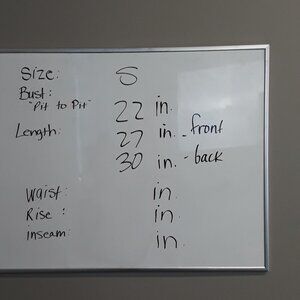 Size: S
Bust:
"Pit to Pit" 22 in.
Length: 27 in. - front
30 in. - back
Waist: in.
Rise: in.
Inseam: in.